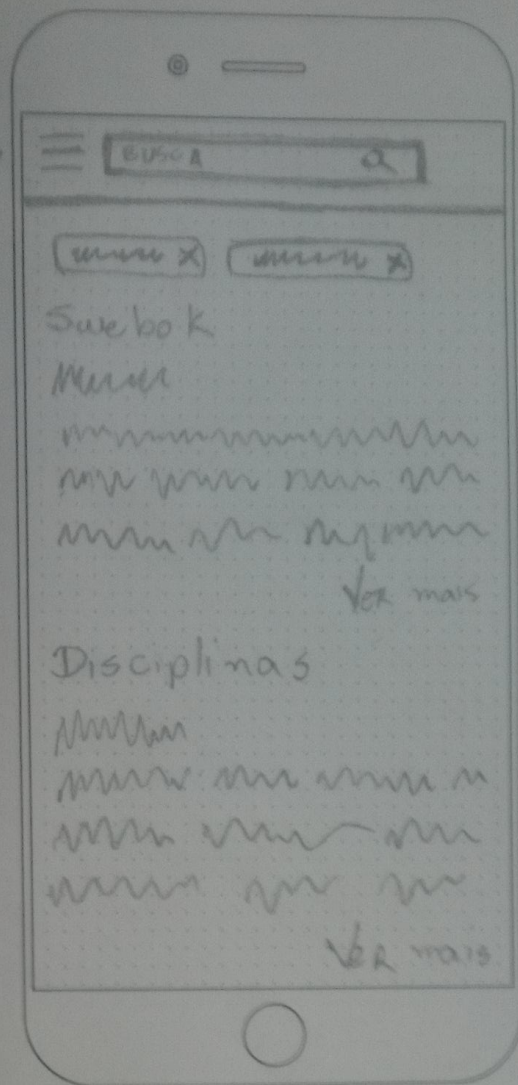 BUSCA
Swebok
Ver mais
Disciplinas
Ver mais